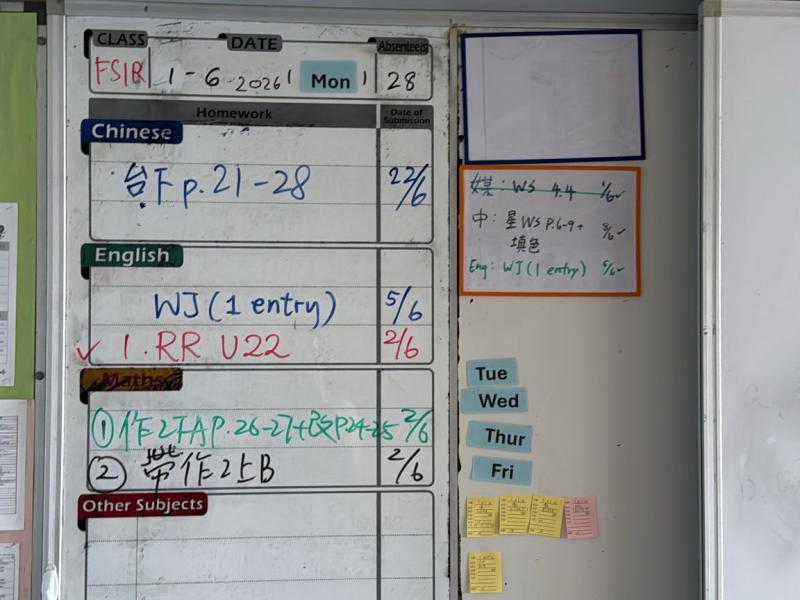 CLASS DATE Absentee(s)
FSIR 1-6-2026 ( Mon ) 28
Homework Date of Submission
Chinese
台下 p.21-28 22/6
English
WJ (1 entry) 5/6
✓ 1. RR U22 2/6
Maths
① 作2下A P.26-27+改P24-25 2/6
② 帶作2上B 2/6
Other Subjects
WS 4.4 1/6✓
中: 星WS P.6-9+ 8/6✓
填色
Eng: WJ (1 entry) 5/6✓
Tue
Wed
Thur
Fri